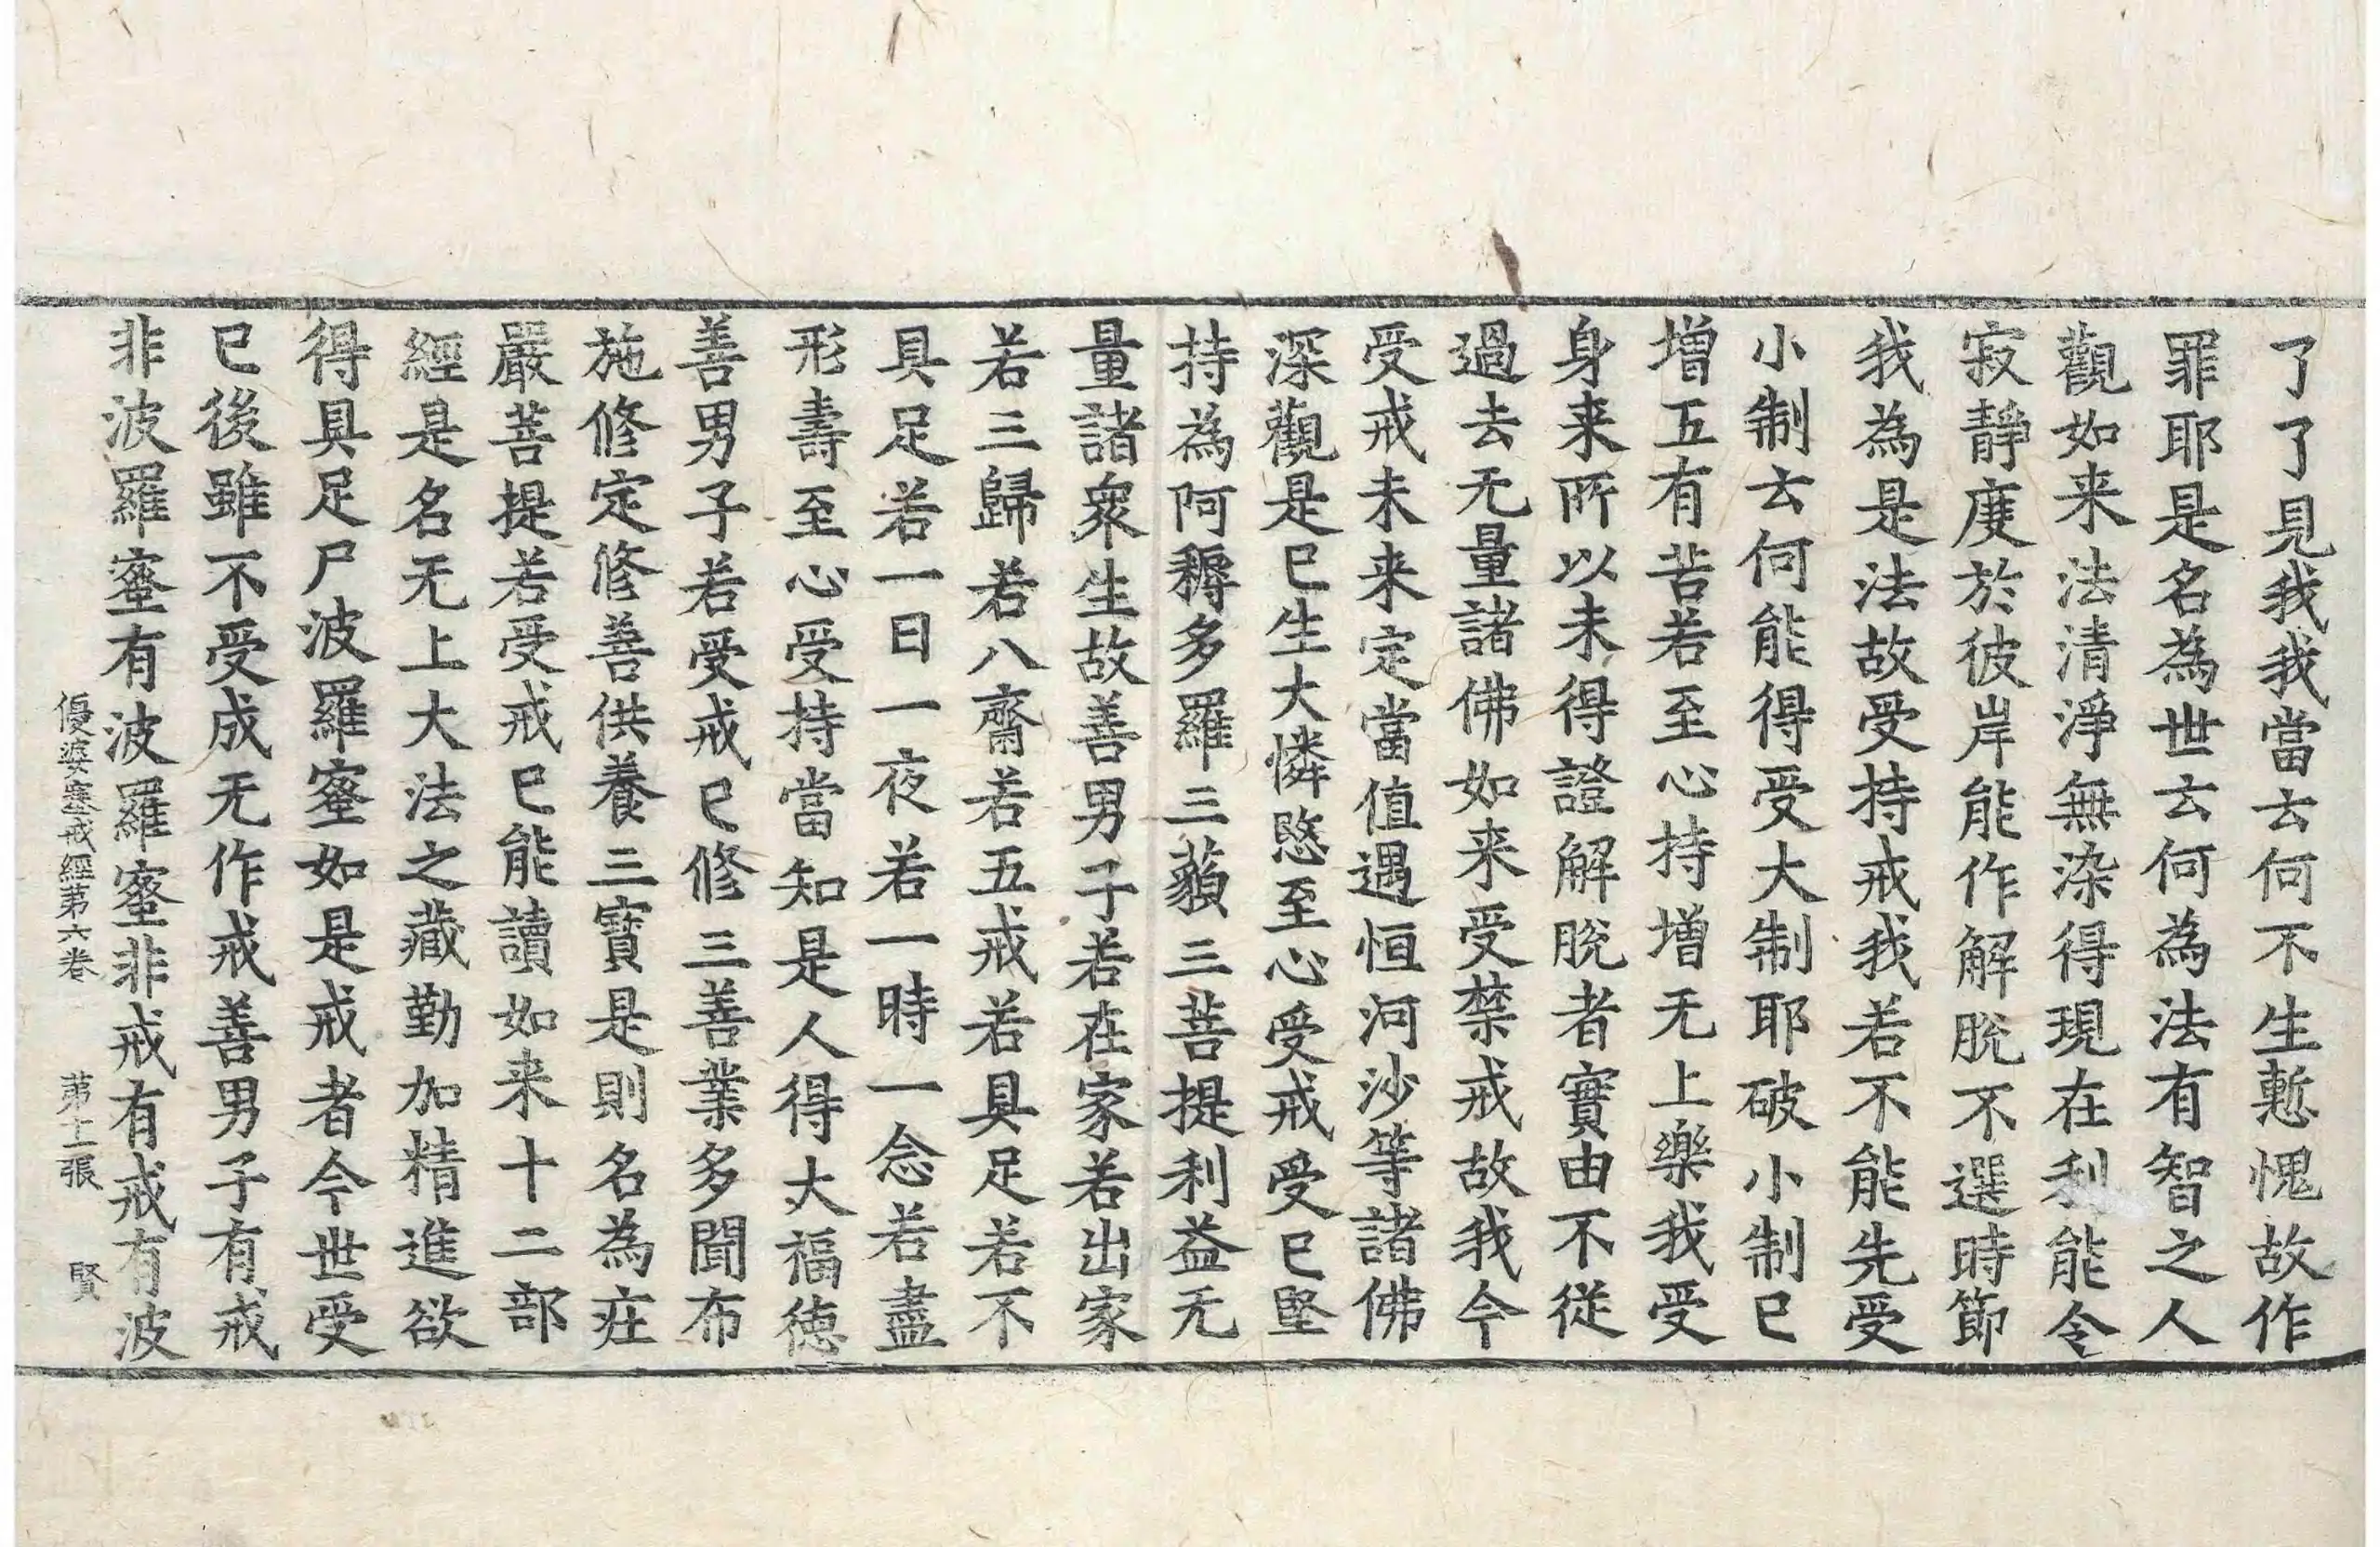 了了見我我當云何不生慙愧故作
罪耶是名為世云何為法有智之人
觀如来法清淨無染得現在利能令
寂靜度於彼岸能作解脫不選時節
我為是法故受持戒我若不能先受
小制云何能得受大制耶破小制已
增五有苦若至心持增无上樂我受
身来所以未得證解脫者實由不從
過去无量諸佛如来受禁戒故我今
受戒未来定當值遇恒河沙等諸佛
深觀是已生大憐愍至心受戒受已堅
持為阿耨多羅三藐三菩提利益无
量諸衆生故善男子若在家若出家
若三歸若八齋若五戒若具足若不
具足若一日一夜若一時一念若盡
形壽至心受持當知是人得大福德
善男子若受戒已修三善業多聞布
施修定修善供養三寶是則名為莊
嚴菩提若受戒已能讀如来十二部
經是名无上大法之藏勤加精進欲
得具足尸波羅蜜如是戒者今世受
已後雖不受成无作戒善男子有戒
非波羅蜜有波羅蜜非戒有戒有波
優婆塞戒經第六卷 第十張 賢